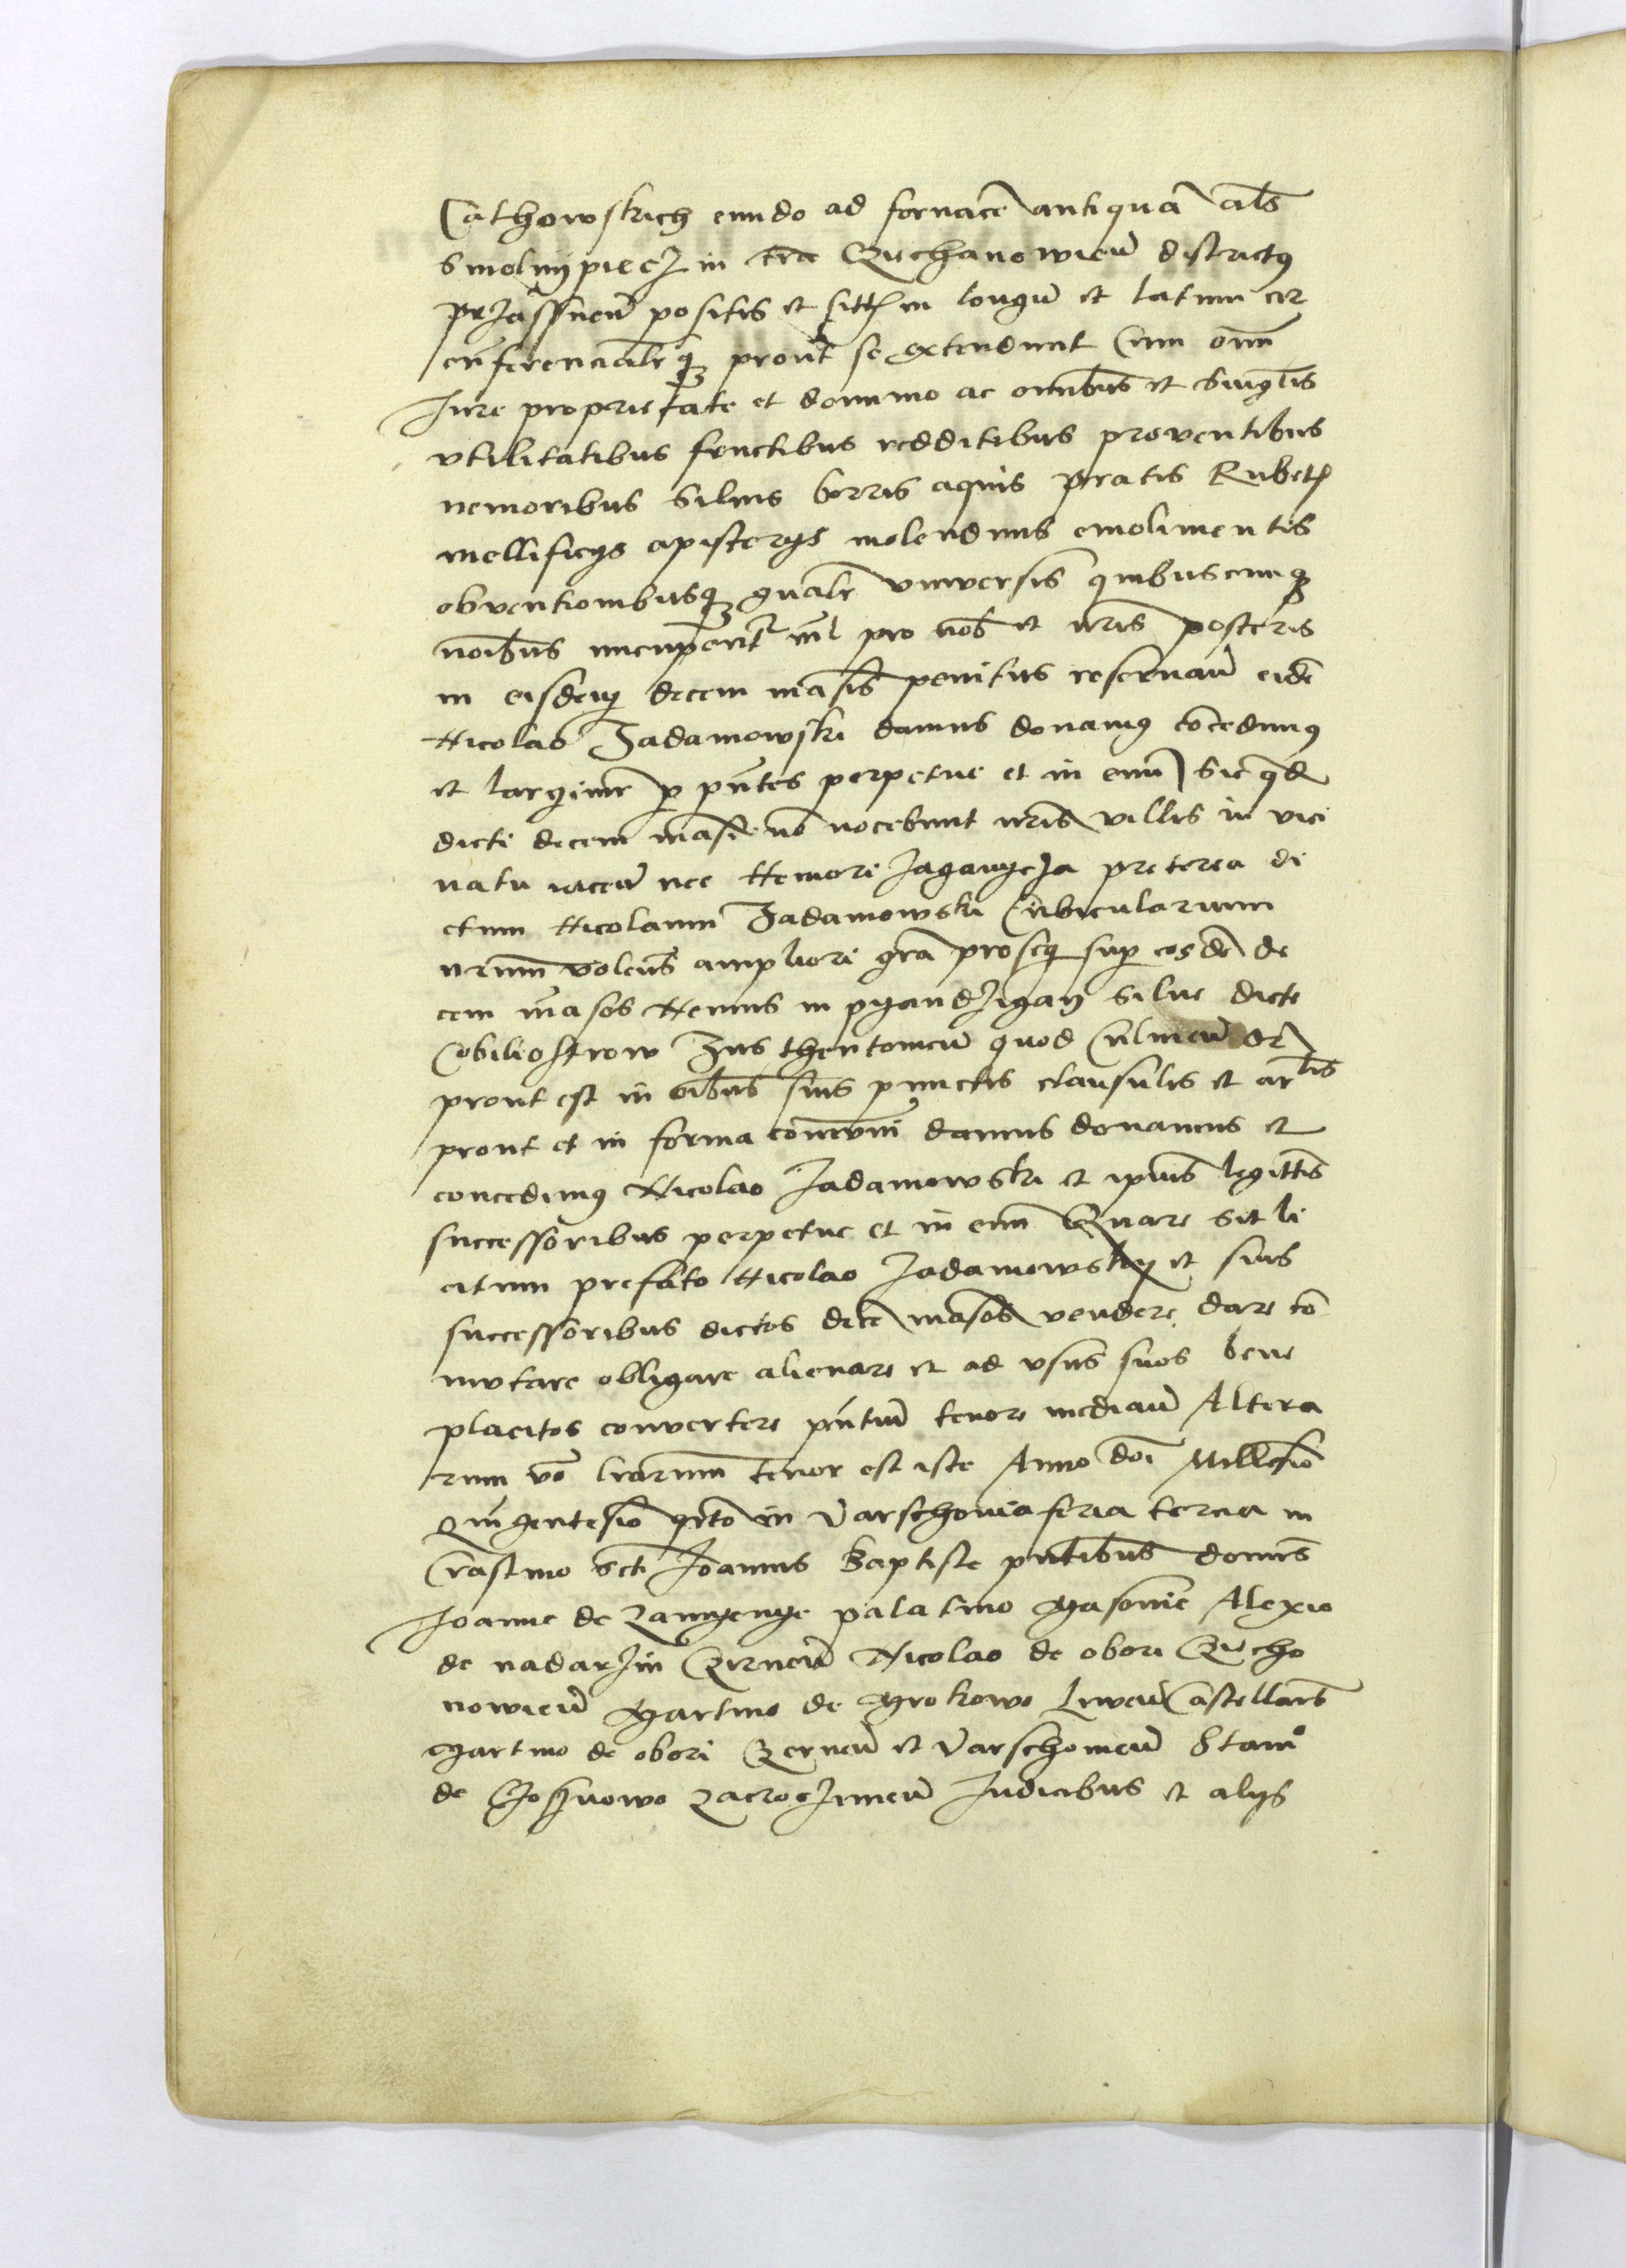 Cathowskich eundo ad fornacē antiquā als
Smolnypiecz in trā Czechanowicen̄ districtus
przassnen̄ positis et sitis in longū et latum cir
cūferencialrq; prout se extendunt Cum omī
Jure proprietate et dominio ac omībus et singlis
vtilitatibus fructibus redditibus proventibus
nemoribus siluis borris aquis pratis Rubetis
mellificijs apisterijs molendinis emolimentis
obventionibusq; gnalr vniversis quibuscunq;
noibus nuncupentr nil pro nob et nris posteris
in eisdem decem māsis penitus reservan̄ eidē
Nicolao Zadamowski damus donamus cōcedimus
et largimr p pn̄tes perpetue et in evū Sic qd
dicti decem māsi nō nocebunt nris villis in vici
natu iacen̄ nec Nemori Jagaucza preterea di
ctum Nicolaum Zadamowski Cubicularium
nrum volens ampliori grā proseq sup eosdē de
cem māsos Nemus in pyandzigan silue dicte
Cobiliostrow Jus thentonicū quod Culmen̄ dr
prout est in oibus suis punctis clausulis et arlis
prout et in forma cōmuni damus donamus et
concedimus Nicolao Jadamowski et ipius legittis
successoribus perpetue et in evū Quare sit li
citum prefato Nicolao Jadamowsky et suis
successoribus dictos decē māsos vendere dare cō
mutare obligare alienare et ad vsus suos bene
placitos convertere pn̄tiū tenore median̄ Altera
rum vo lrarum tenor est iste Anno doi Millesimo
Quingentesio qrto in Varschovia feria tercia in
Crastino scti Joannis Baptiste pn̄tibus dominis
Joanne de zamyenye palatino Masovie Alexio
de nadarzin Czirnen̄ Nicolao de obori Czecho
nowicen̄ Martino de Mrokowo Liven̄ Castellanis
Martino de obori Czernen̄ et Varschovien̄ Stano
de Gossnowo zacroczimen̄ Judicibus et alijs